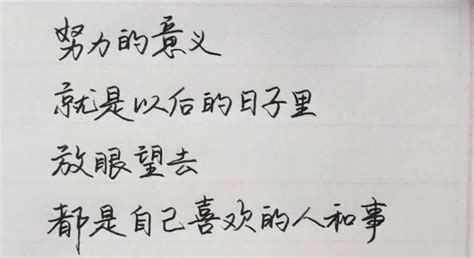 努力的意义
就是以后的日子里
放眼望去
都是自己喜欢的人和事